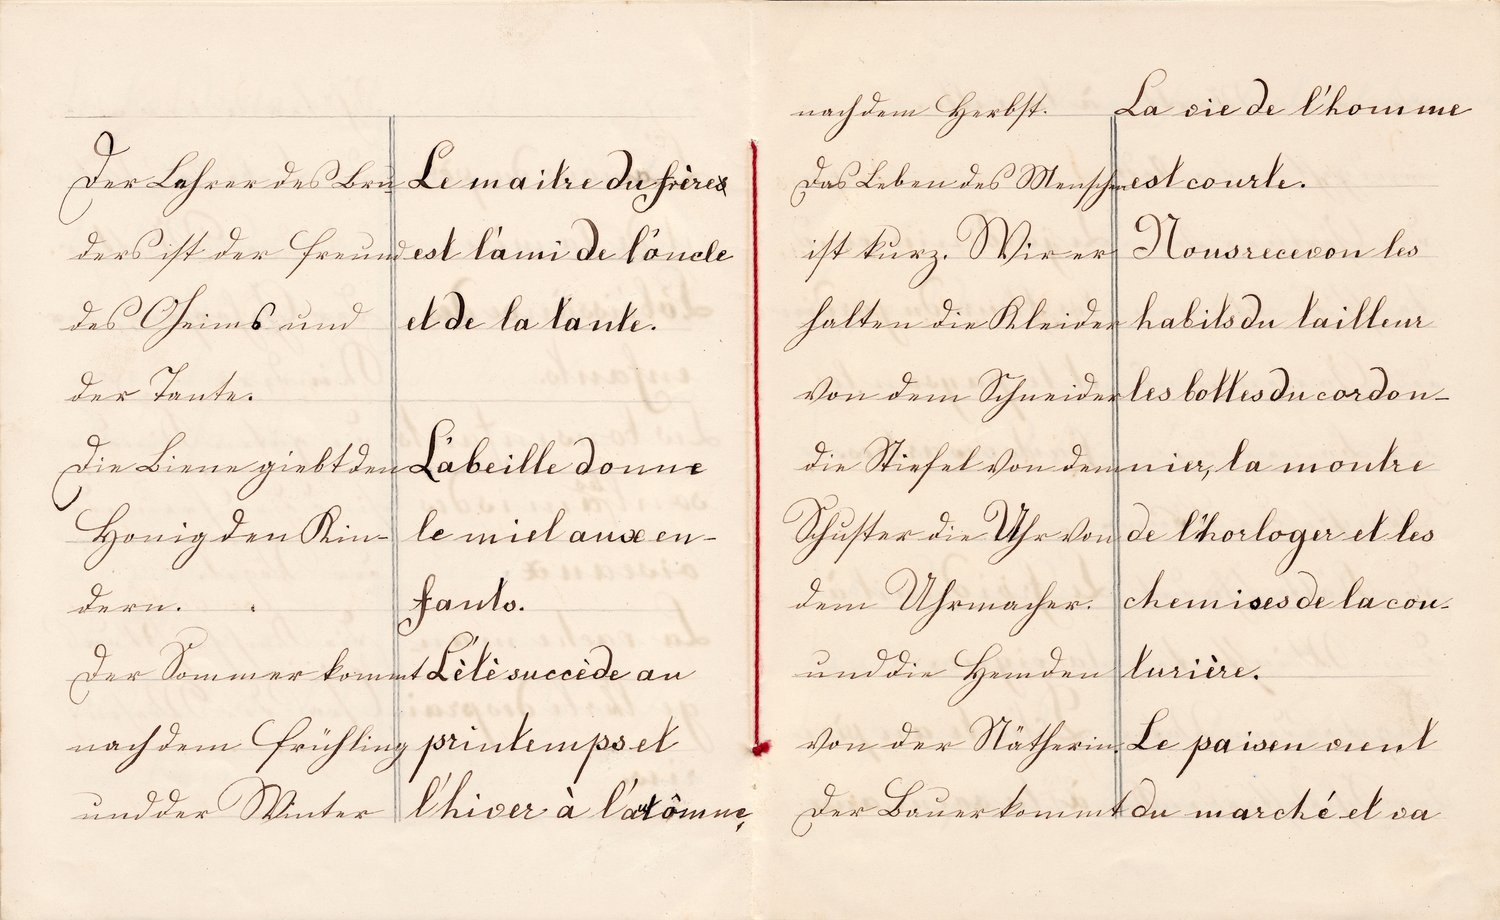 Der Lehrer des Bru
ders ist der Freund
des Oheims und
der Tante.
Die Biene giebt den
Honig den Kin-
dern.
Der Sommer kommt
nach dem Frühling
und der Winter
Le maitre du frère
est l'ami de l'oncle
et de la tante.
L'abeille donne
le miel aux en-
fants.
L'èté succède au
printemps et
l'hiver à l'autômne,
nach dem Herbst.
Das Leben des Menschen
ist kurz. Wir er
halten die Kleider
von dem Schneider
die Stiefel von dem
Schuster die Uhr von
dem Uhrmacher.
und die Hemden
von der Nätherin.
Der Bauer kommt
La vie de l'homme
est courte.
Nous recevon les
habits du tailleur
les bottes du cordon-
nier, la montre
de l'horloger et les
chemises de la cou-
turière.
Le paisen vient
du marché et va